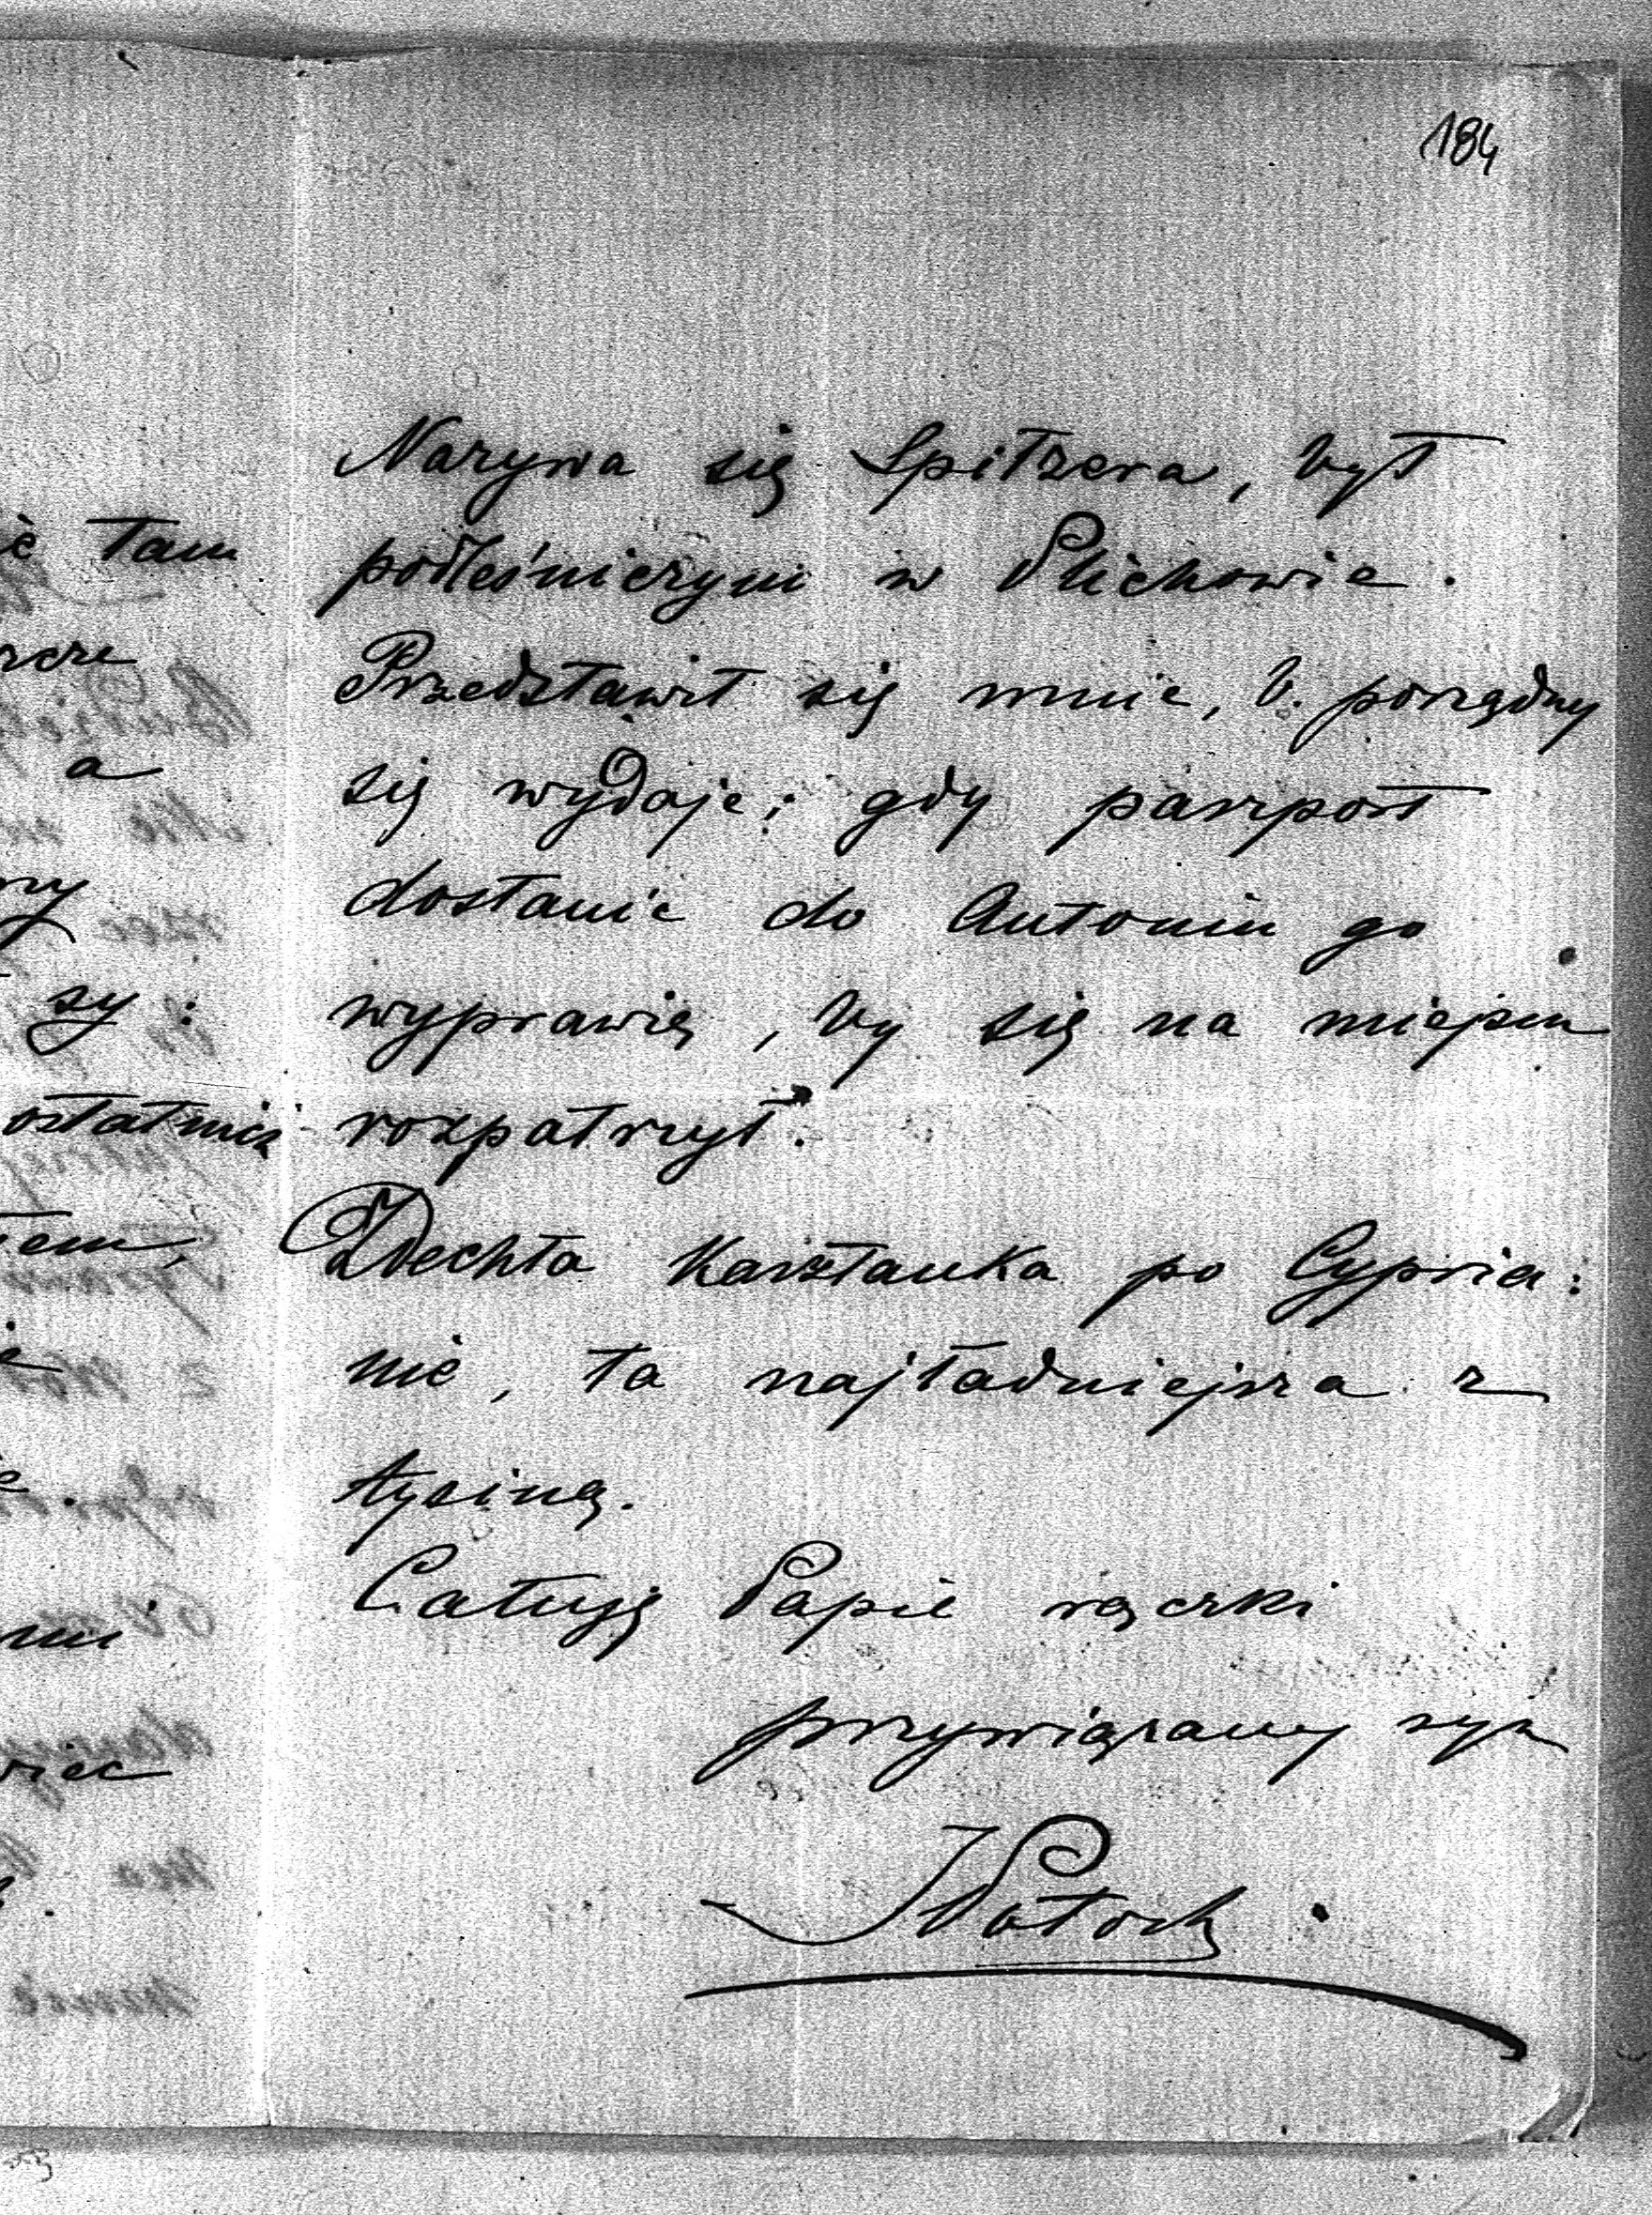 184
Nazywa się Spitzera, był
podleśniczym w Plichowie.
Przedstawił się mnie, b. porządny
się wydaje; gdy paszport
dostanie do Antonin go
wyprawię, by się na miejscu
rozpatrzył.
Zdechła Kasztanka po Cypria:
nie, ta najładniejsza z
łysiną.
Całuję Papie rączki
przywiązany syn
JPotock
ć tam
a
sy:
ostatnicą